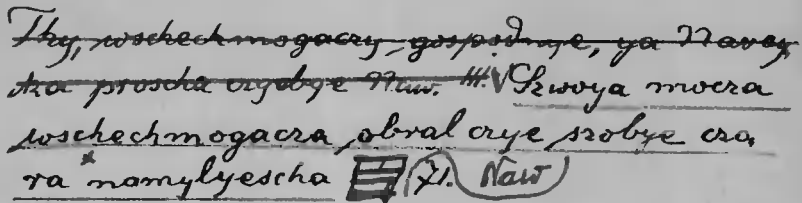 Thy, wschechmogaczy, gospodnye, ya Naway
ka proscha czyebye Naw. III. Szwoya mocza
wschechmogacza, obral czye szobye cza
ra* namylyescha 71. Naw